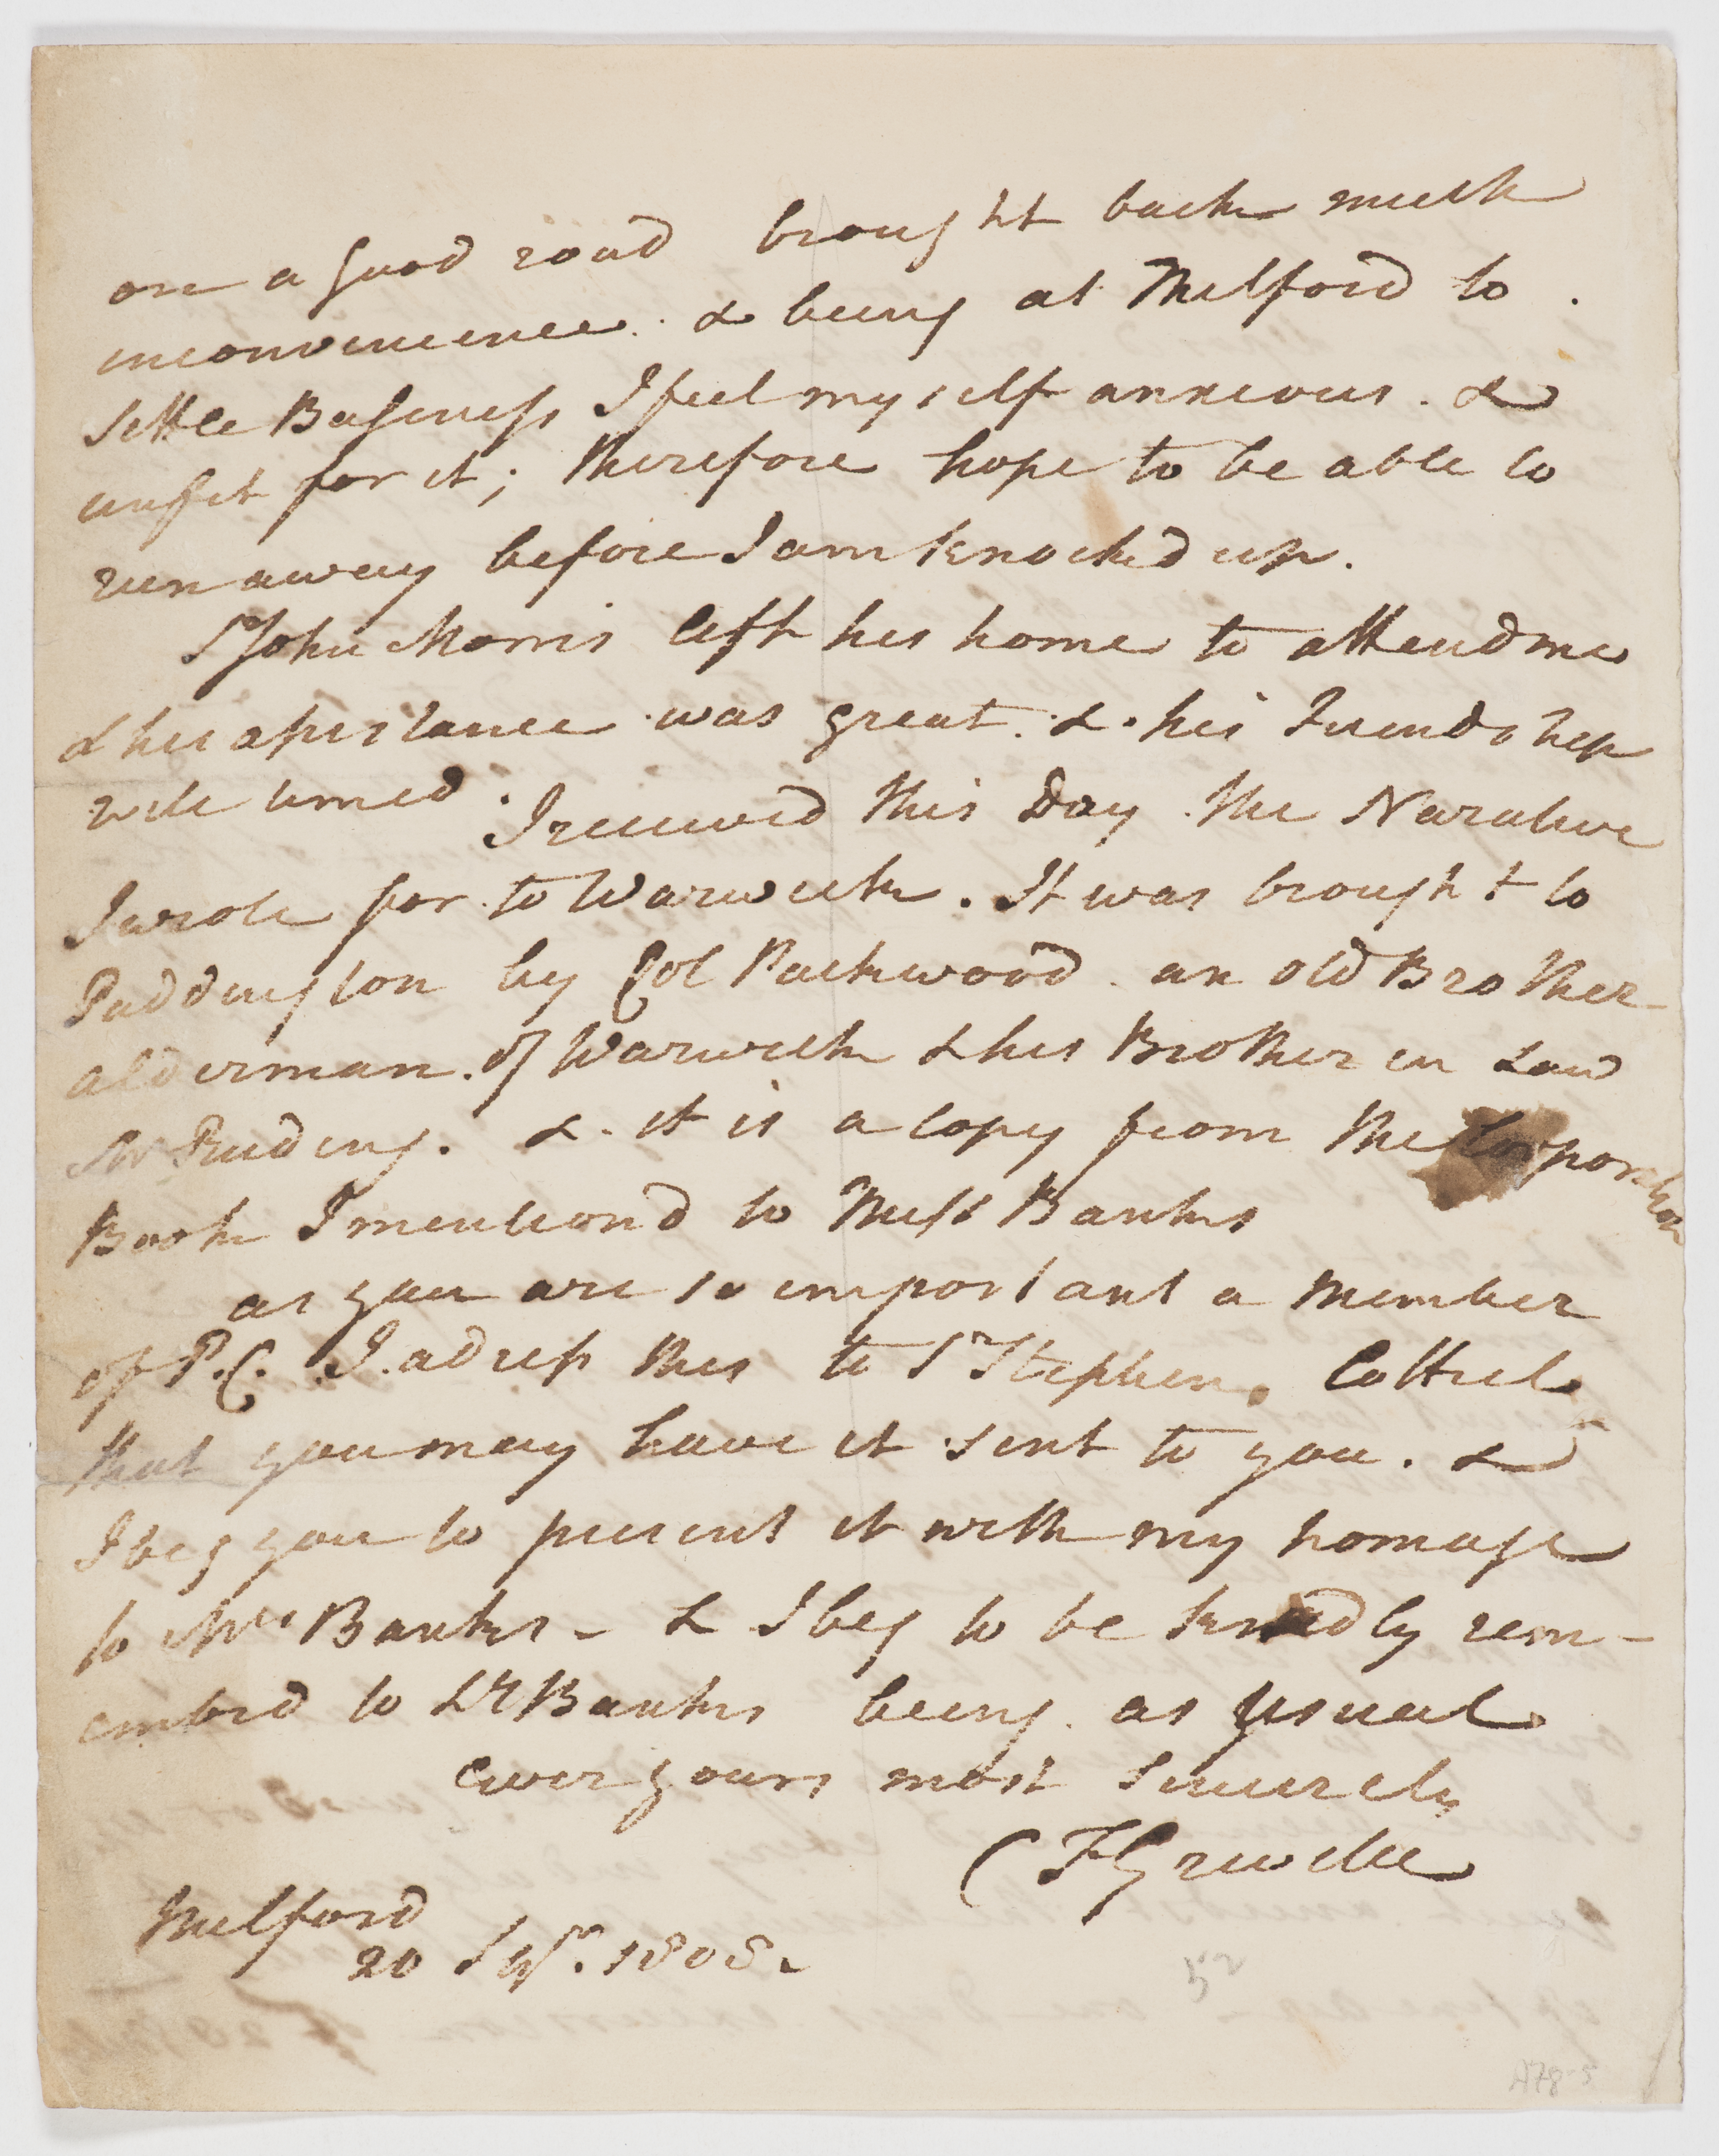 on a good road brought back much
inconvenience. & being at Milford to
settle Business I feel myself anxious. &
unfit for it; therefore hope to be able to
run away before I am knocked up.
Sr John Morris left his home to attend me
& his assistance was great. & his Friendship
well timed. I received this Day the Narative
I wrote for to Warwick. It was brought to
Paddington by Col Packwood an old Brother
alderman of Warwick & his Brother in Law
Mr Ruding. & it is a copy from the Corporation
Book I mentiond to Miss Banks
as you are so important a Member
of P.C. I adress this to Sr Stephen Cottrel
that you may have it sent to you. &
I beg you to present it with my homage
to Mrs Banks - & I beg to be kindly rem-
emberd to Ly Banks being as Usual
ever yours most Sincerely
C F Greville
Milford
20 Sepr. 1808.
52
A78-5